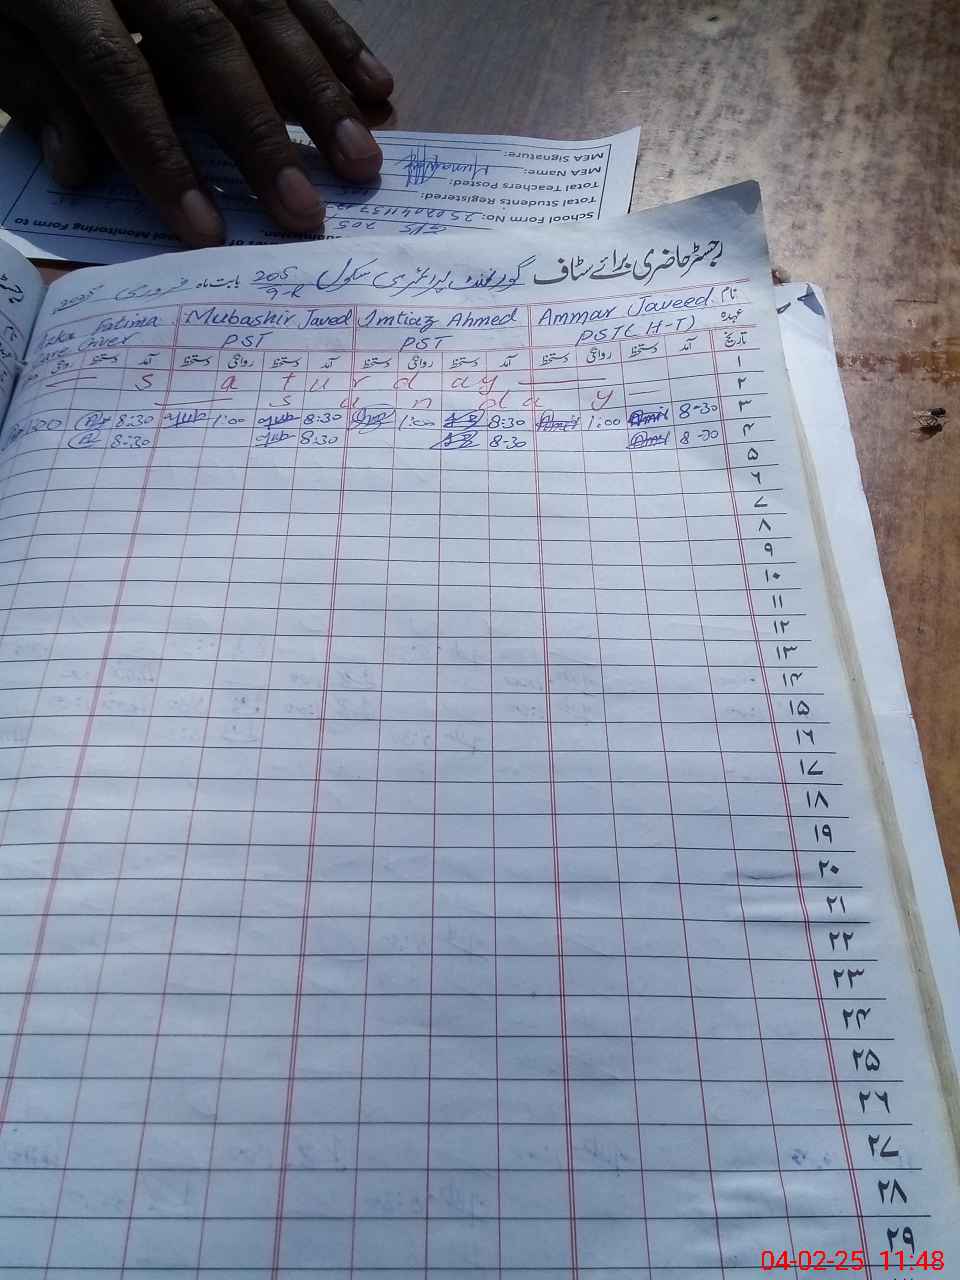 MEA Signature:
MEA Name:
Total Teachers Posted:
Total Students Registered:
School Form No:
Monitoring Form to
رجسٹر حاضری برائے سٹاف گورنمنٹ پرائمری سکول 205/9-R بابت ماہ فروری 2025
نام Ammar Javeed Imtiaz Ahmed Mubashir Javed Fatima
عہدہ PST(H-T) PST PST Giver
تاریخ آمد دستخط روانگی دستخط آمد دستخط روانگی دستخط آمد دستخط روانگی دستخط آمد دستخط روانگی
۱ Saturday
۲ Sunday
۳ 8-30 1:00 8:30 1:00 8:30 1:00 8:30
۴ 8-30 8-30 8:30 8:30
۵
۶
۷
۸
۹
۱۰
۱۱
۱۲
۱۳
۱۴
۱۵
۱۶
۱۷
۱۸
۱۹
۲۰
۲۱
۲۲
۲۳
۲۴
۲۵
۲۶
۲۷
۲۸
۲۹
04-02-25 11:48